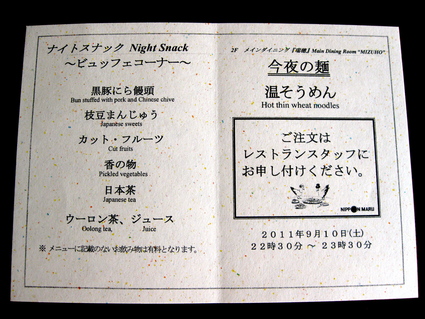 ナイトスナック Night Snack
~ビュッフェコーナー~
黒豚にら饅頭
Bun stuffed with pork and Chinese chive
枝豆まんじゅう
Japanese sweets
カット・フルーツ
Cut fruits
香の物
Pickled vegetables
日本茶
Japanese tea
ウーロン茶、ジュース
Oolong tea, Juice
※ メニューに記載のないお飲み物は有料となります。
2F メインダイニング『瑞穂』Main Dining Room "MIZUHO"
今夜の麺
温そうめん
Hot thin wheat noodles
ご注文は
レストランスタッフに
お申し付けください。
NIPPON MARU
2011年9月10日(土)
22時30分 ~ 23時30分